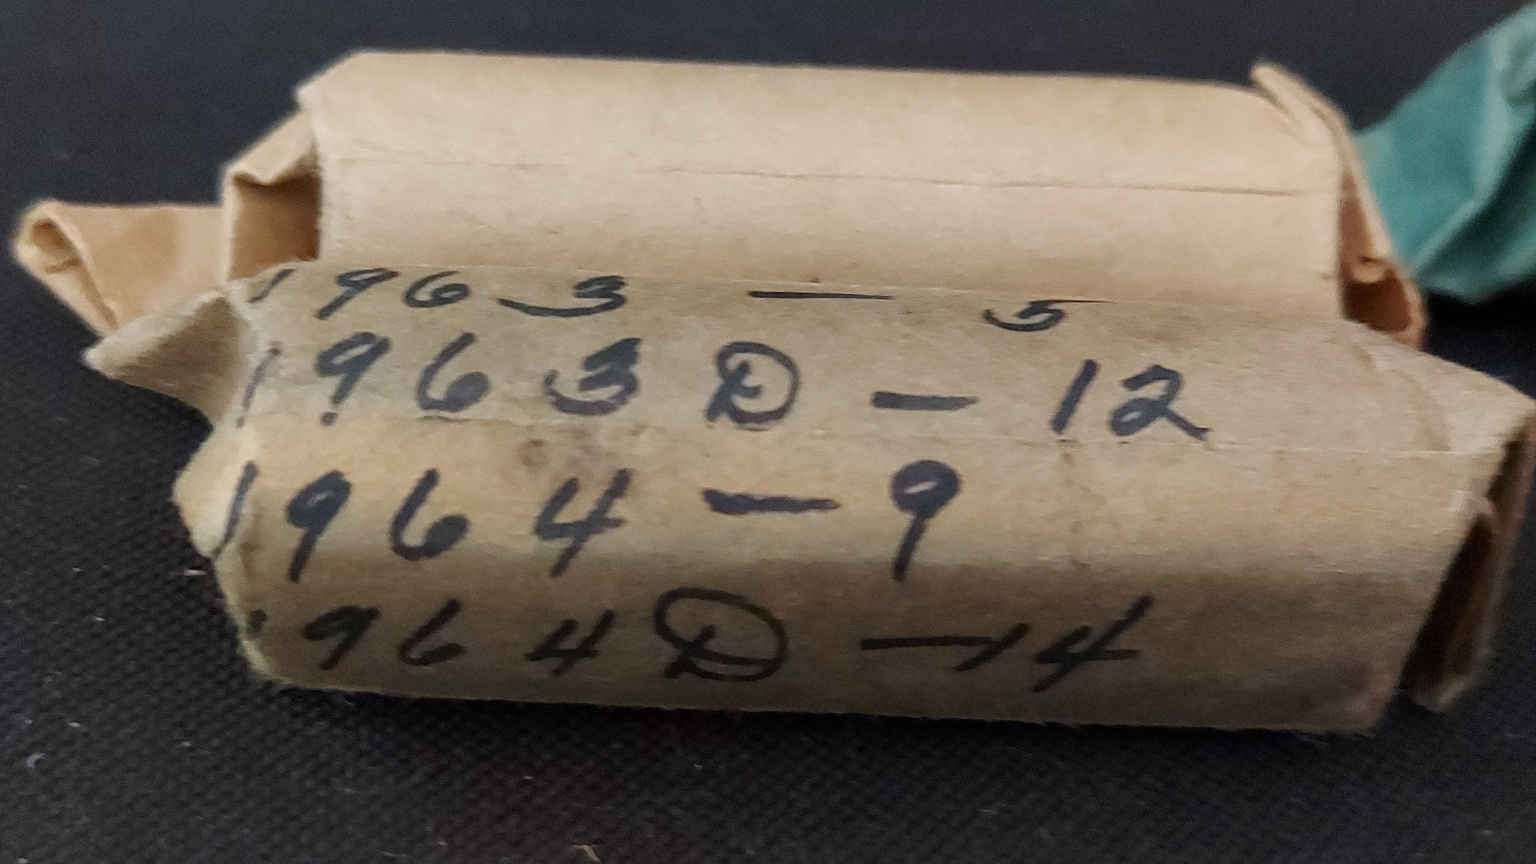 1963 — 5
1963 D — 12
1964 — 9
1964 D — 14